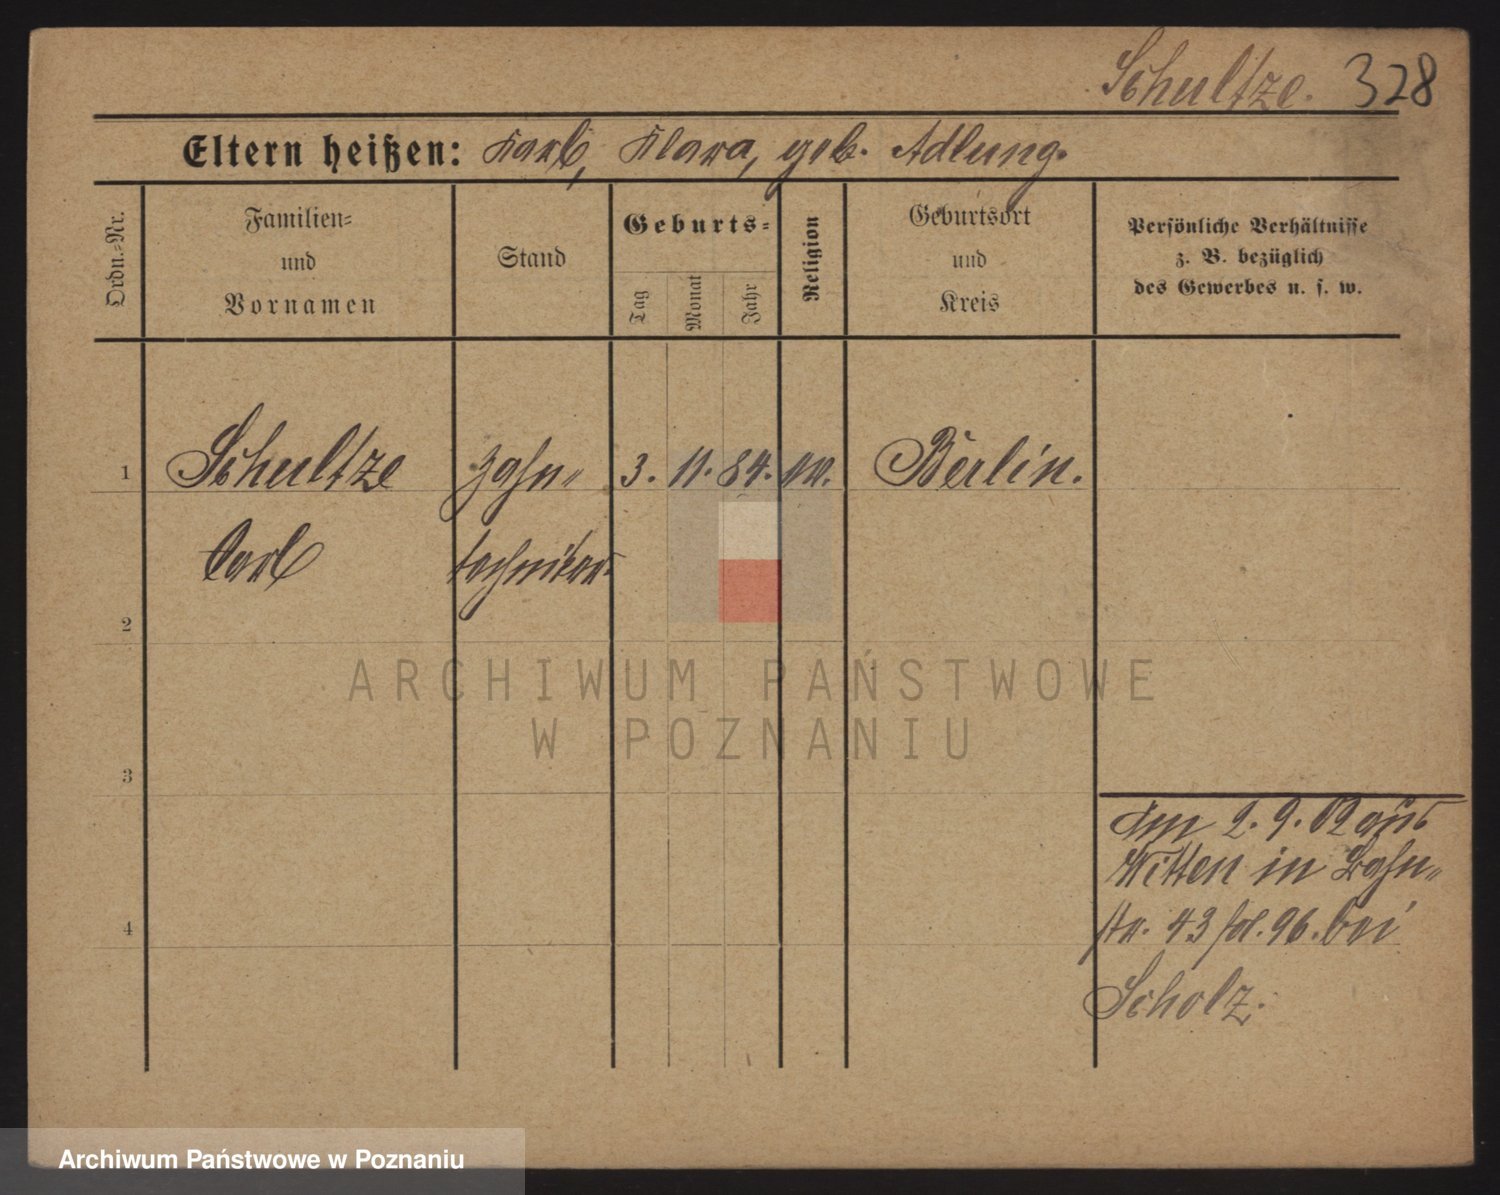 Schultze. 328
Eltern heißen: Karl, Klara, geb. Adlung.
Ordn.-Nr.
Familien-
und
Vornamen
Stand
Geburts-
Tag
Monat
Jahr
Religion
Geburtsort
und
Kreis
Persönliche Verhältnisse
z. B. bezüglich
des Gewerbes u. s. w.
1 Schultze Zahn- 3. 11. 84. ev. Berlin.
Carl techniker
2
3
4
Am 2. 9. 02 aus
Witten in Bahn-
str. 43 fol. 96. bei
Scholz.
ARCHIWUM PAŃSTWOWE
W POZNANIU
Archiwum Państwowe w Poznaniu